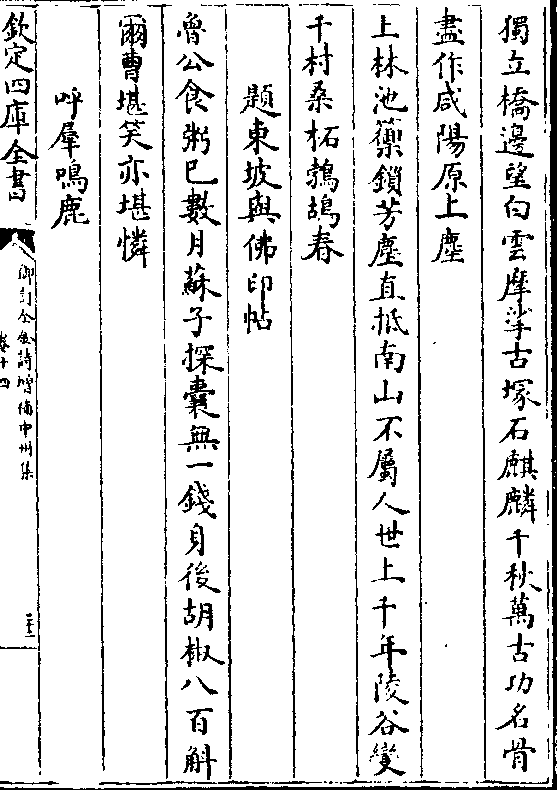 獨立橋邊望白雲摩挲古塚石麒麟千秋萬古功名骨
盡作咸陽原上塵
上林池籞鎖芳塵直抵南山不屬人世上千年陵谷變
千村桑柘鵓鴣春
題東坡與佛印帖
魯公食粥已數月蘇子探囊無一錢身後胡椒八百斛
爾曹堪笑亦堪憐
呼犀鳴鹿
欽定四庫全書
御訂全金詩增補中州集
卷十四
二十三